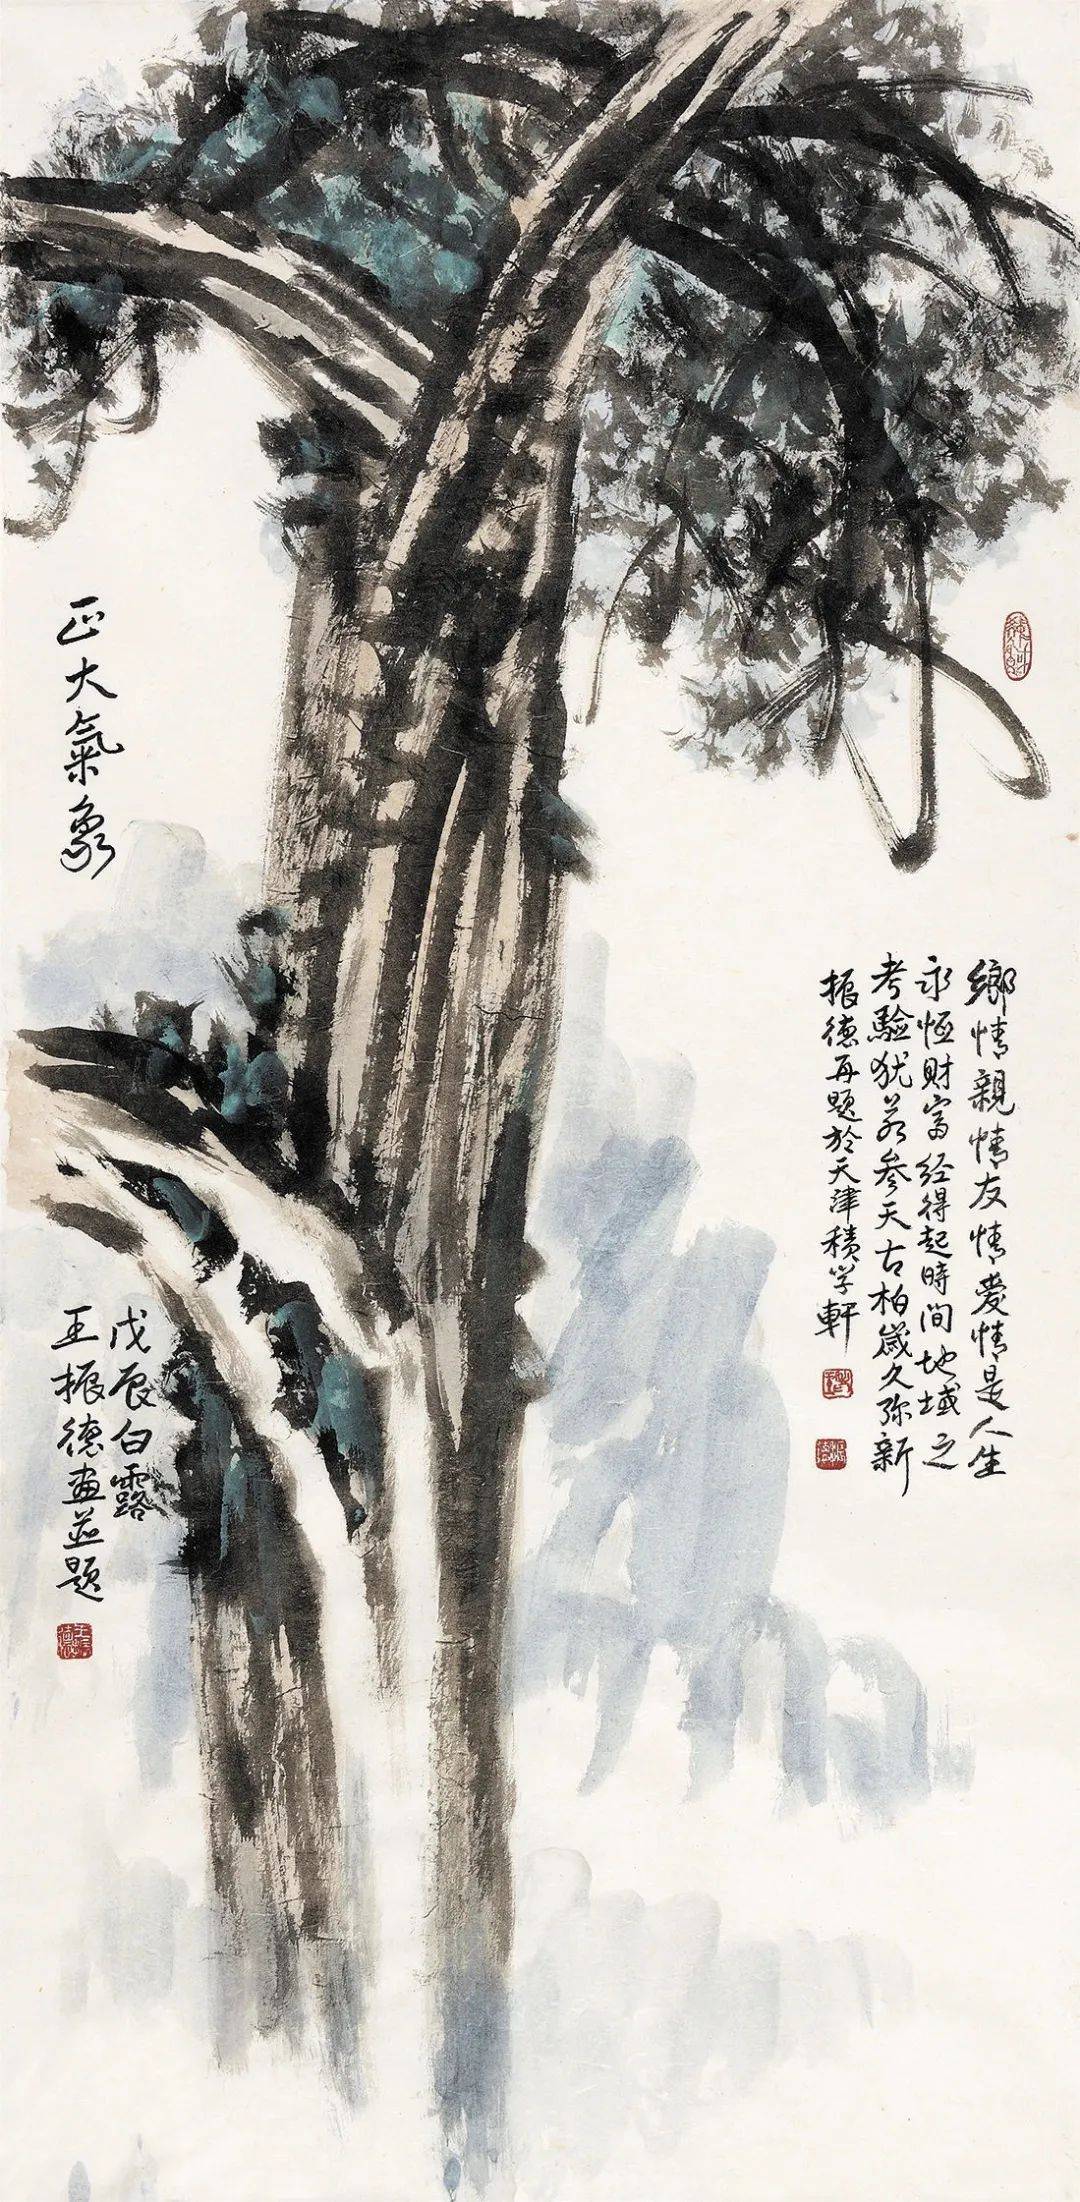 鄉情親情友情愛情是人生
永恒財富经得起時间地域之
考驗犹若參天古柏歲久弥新
振德再题於天津積学軒
正大氣象
戊辰白露
王振德畫並题
王振德